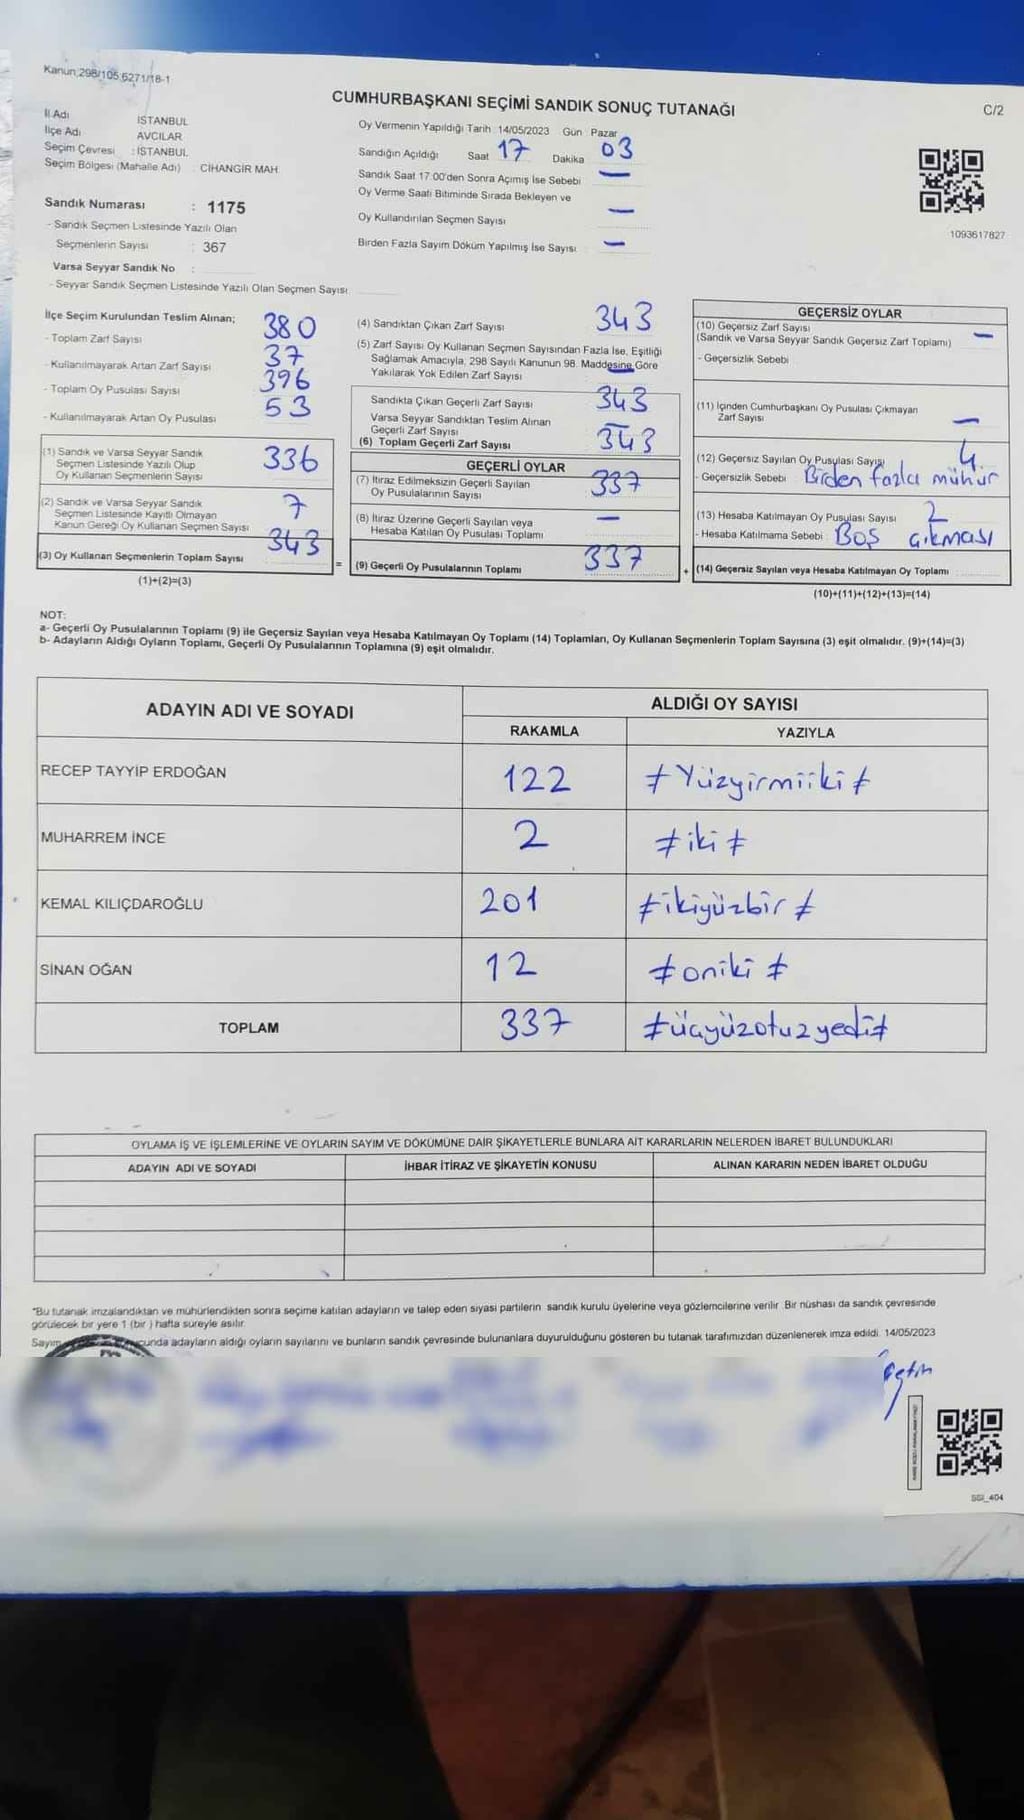 Kanun;298/105,6271/18-1
CUMHURBAŞKANI SEÇİMİ SANDIK SONUÇ TUTANAĞI
C/2
İl Adı İSTANBUL
İlçe Adı AVCILAR
Seçim Çevresi : İSTANBUL
Seçim Bölgesi (Mahalle Adı) : CİHANGİR MAH.
Sandık Numarası : 1175
- Sandık Seçmen Listesinde Yazılı Olan
Seçmenlerin Sayısı : 367
Varsa Seyyar Sandık No :
- Seyyar Sandık Seçmen Listesinde Yazılı Olan Seçmen Sayısı
Oy Vermenin Yapıldığı Tarih 14/05/2023 Gün Pazar
Sandığın Açıldığı Saat 17 Dakika 03
Sandık Saat 17:00'den Sonra Açımış İse Sebebi —
Oy Verme Saati Bitiminde Sırada Bekleyen ve
Oy Kullandırılan Seçmen Sayısı —
Birden Fazla Sayım Döküm Yapılmış İse Sayısı —
1093617827
İlçe Seçim Kurulundan Teslim Alınan;
- Toplam Zarf Sayısı 380
- Kullanılmayarak Artan Zarf Sayısı 37
- Toplam Oy Pusulası Sayısı 396
- Kullanılmayarak Artan Oy Pusulası 53
(1) Sandık ve Varsa Seyyar Sandık
Seçmen Listesinde Yazılı Olup
Oy Kullanan Seçmenlerin Sayısı 336
(2) Sandık ve Varsa Seyyar Sandık
Seçmen Listesinde Kayıtlı Olmayan
Kanun Gereği Oy Kullanan Seçmen Sayısı 7
(3) Oy Kullanan Seçmenlerin Toplam Sayısı 343
(1)+(2)=(3)
=
(4) Sandıktan Çıkan Zarf Sayısı 343
(5) Zarf Sayısı Oy Kullanan Seçmen Sayısından Fazla İse, Eşitliği
Sağlamak Amacıyla, 298 Sayılı Kanunun 98. Maddesine Göre
Yakılarak Yok Edilen Zarf Sayısı —
Sandıkta Çıkan Geçerli Zarf Sayısı 343
Varsa Seyyar Sandıktan Teslim Alınan
Geçerli Zarf Sayısı —
(6) Toplam Geçerli Zarf Sayısı 343
GEÇERLİ OYLAR
(7) İtiraz Edilmeksizin Geçerli Sayılan
Oy Pusulalarının Sayısı 337
(8) İtiraz Üzerine Geçerli Sayılan veya
Hesaba Katılan Oy Pusulası Toplamı —
(9) Geçerli Oy Pusulalarının Toplamı 337
+
GEÇERSİZ OYLAR
(10) Geçersiz Zarf Sayısı
(Sandık ve Varsa Seyyar Sandık Geçersiz Zarf Toplamı) —
- Geçersizlik Sebebi
(11) İçinden Cumhurbaşkanı Oy Pusulası Çıkmayan
Zarf Sayısı —
(12) Geçersiz Sayılan Oy Pusulası Sayısı 4
- Geçersizlik Sebebi Birden fazla mühür
(13) Hesaba Katılmayan Oy Pusulası Sayısı 2
- Hesaba Katılmama Sebebi Boş çıkması
(14) Geçersiz Sayılan veya Hesaba Katılmayan Oy Toplamı
(10)+(11)+(12)+(13)=(14)
NOT:
a- Geçerli Oy Pusulalarının Toplamı (9) ile Geçersiz Sayılan veya Hesaba Katılmayan Oy Toplamı (14) Toplamları, Oy Kullanan Seçmenlerin Toplam Sayısına (3) eşit olmalıdır. (9)+(14)=(3)
b- Adayların Aldığı Oyların Toplamı, Geçerli Oy Pusulalarının Toplamına (9) eşit olmalıdır.
ADAYIN ADI VE SOYADI
ALDIĞI OY SAYISI
RAKAMLA YAZIYLA
RECEP TAYYİP ERDOĞAN 122 ≠ Yüzyirmiiki ≠
MUHARREM İNCE 2 ≠ iki ≠
KEMAL KILIÇDAROĞLU 201 ≠ ikiyüzbir ≠
SİNAN OĞAN 12 ≠ oniki ≠
TOPLAM 337 ≠ üçyüzotuzyedi ≠
OYLAMA İŞ VE İŞLEMLERİNE VE OYLARIN SAYIM VE DÖKÜMÜNE DAİR ŞİKAYETLERLE BUNLARA AİT KARARLARIN NELERDEN İBARET BULUNDUKLARI
ADAYIN ADI VE SOYADI İHBAR İTİRAZ VE ŞİKAYETİN KONUSU ALINAN KARARIN NEDEN İBARET OLDUĞU
*Bu tutanak imzalandıktan ve mühürlendikten sonra seçime katılan adayların ve talep eden siyasi partilerin sandık kurulu üyelerine veya gözlemcilerine verilir. Bir nüshası da sandık çevresinde
görülecek bir yere 1 (bir ) hafta süreyle asılır.
adayların aldığı oyların sayılarını ve bunların sandık çevresinde bulunanlara duyurulduğunu gösteren bu tutanak tarafımızdan düzenlenerek imza edildi. 14/05/2023
SSI_404